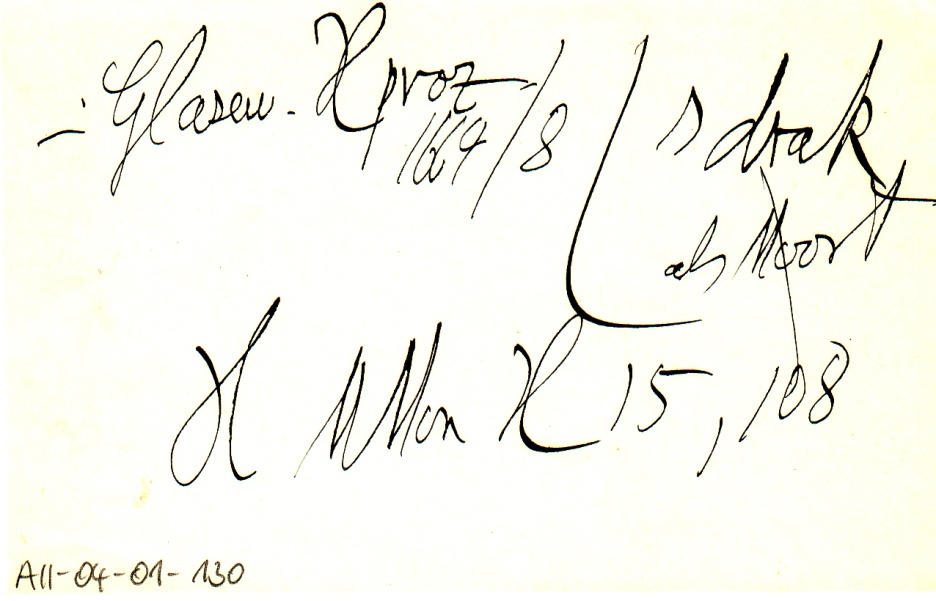 - Glasew. Hproz
1664/8
s drak
als Moort
H MMon H 15, 108
AII-04-01-130